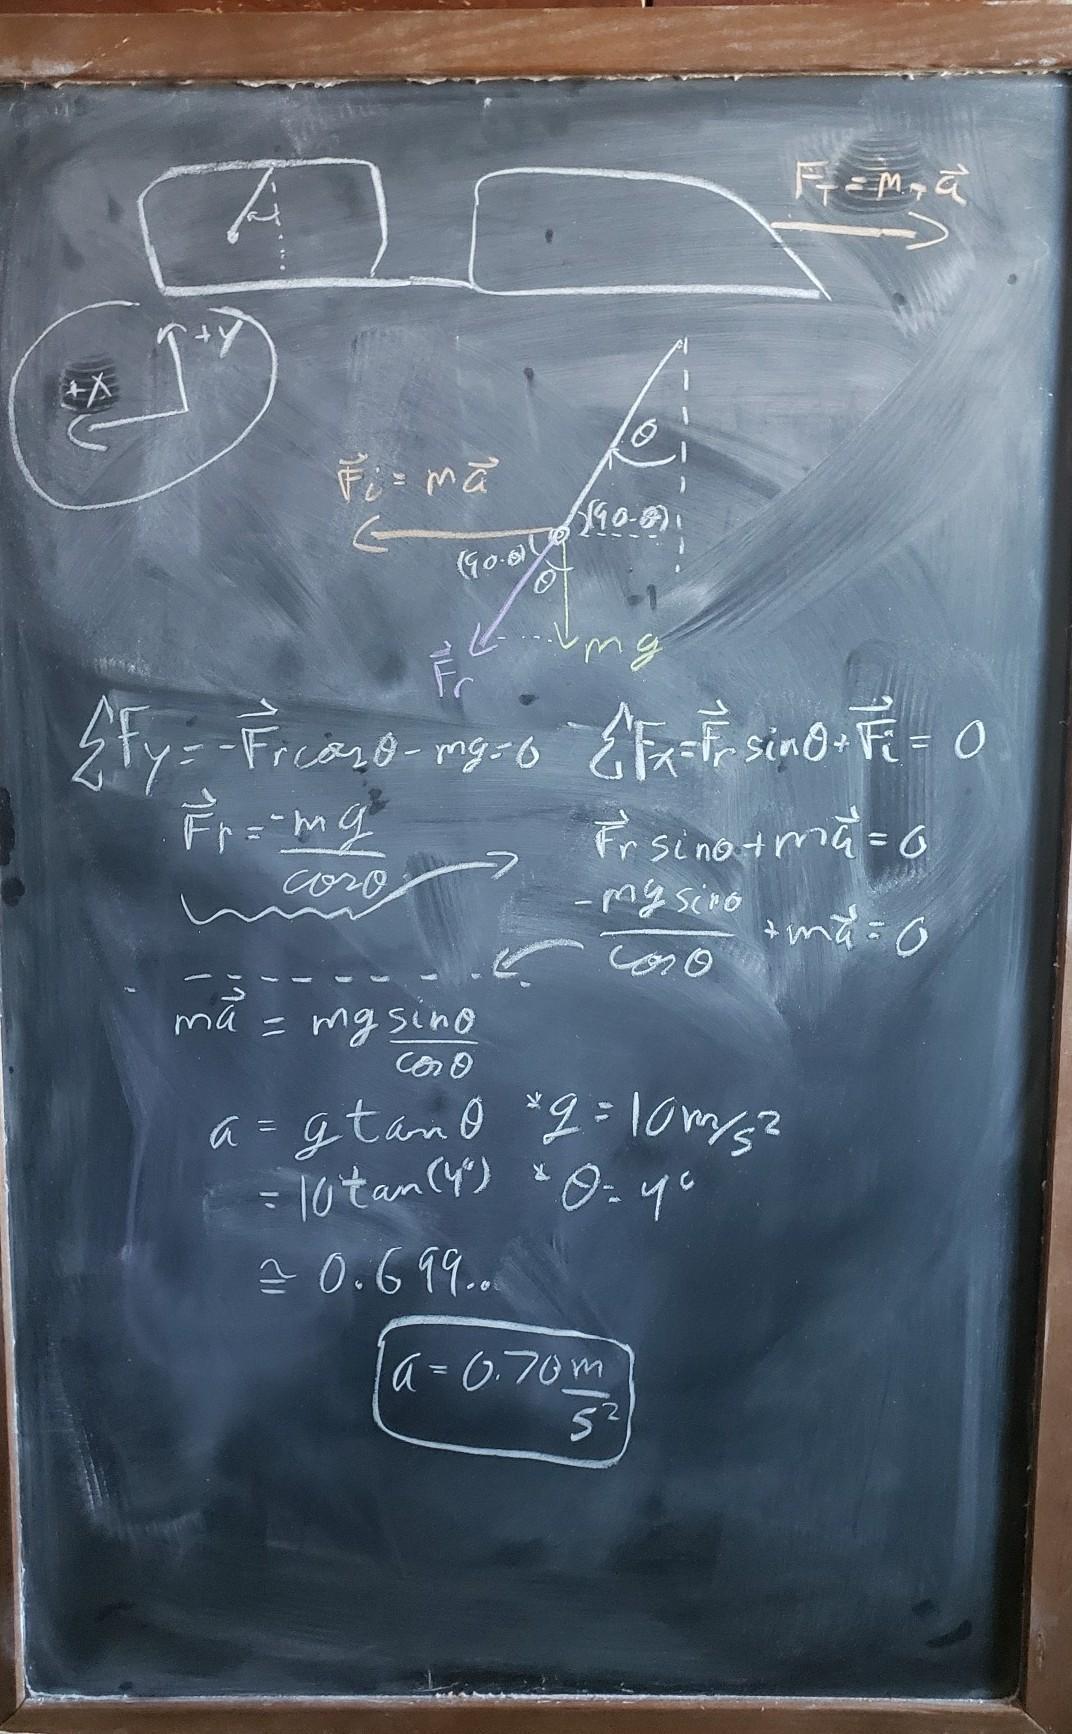 F⃗_T = m_T a⃗
+y
+x
θ
F⃗i = ma⃗
(90-θ)
(90-θ)
θ
F⃗r
mg
ΣFy = -F⃗r cosθ - mg = 0
ΣFx = F⃗r sinθ + F⃗i = 0
F⃗r = -mg/cosθ
F⃗r sinθ + ma⃗ = 0
-mg sinθ/cosθ + ma⃗ = 0
ma⃗ = mg sinθ/cosθ
a = g tanθ *g = 10 m/s²
= 10 tan(4°) *θ = 4°
≅ 0.699..
a = 0.70 m/s²